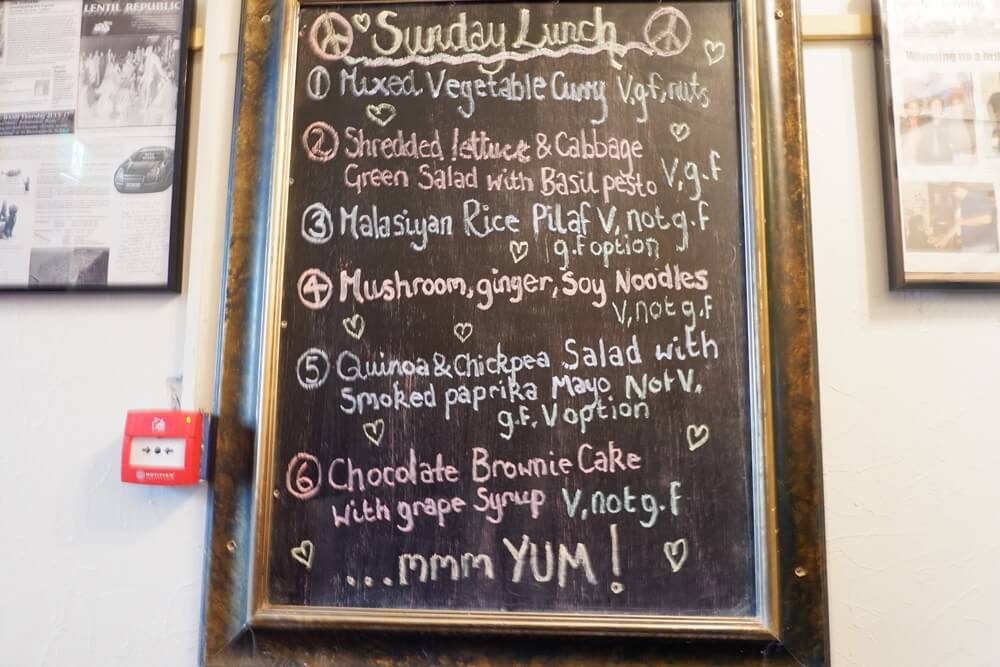 LENTIL REPUBLIC
Sunday Lunch
① Mixed Vegetable Curry V,g.f, nuts
② Shredded lettuce & Cabbage
Green Salad with Basil pesto V,g.f
③ Malasiyan Rice Pilaf V, not g.f
g.f option
④ Mushroom, ginger, Soy Noodles
V, not g.f
⑤ Quinoa & Chickpea Salad with
Smoked paprika Mayo Not V,
g.f, V option
⑥ Chocolate Brownie Cake
with grape Syrup V, not g.f
...mmm YUM!